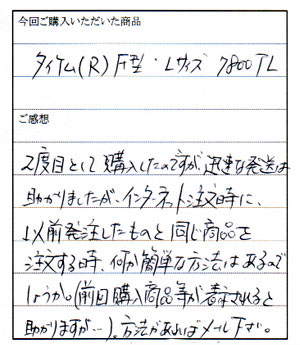 今回ご購入いただいた商品
タイケム(R)F型・Lサイズ 7800TL
ご感想
2度目として購入したのですが、迅速な発送は
助かりましたが、インターネット注文時に、
以前発注したものと同じ商品を
注文する時、何か簡単な方法はあるで
しょうか。(前回購入商品等が表示されると
助かりますが…)。方法があればメール下さい。